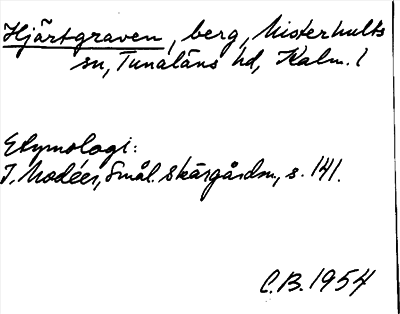 Hjärtgraven, berg, Misterhults
sn, Tunaläns hd, Kalm. l
Etymologi:
I. Modéer, Smål. skärgårdsn., s. 141.
C.B. 1954